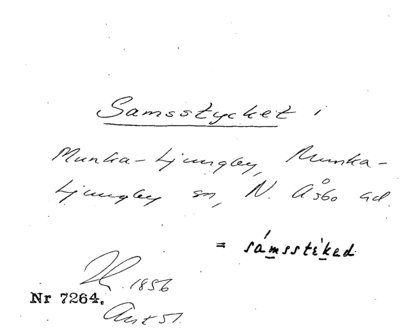 Samsstycket i
Munka-Ljungby, Munka-
Ljungby sn, N. Åsbo hd
= sámsstiked
1856
Nr 7264.
Ant 51.